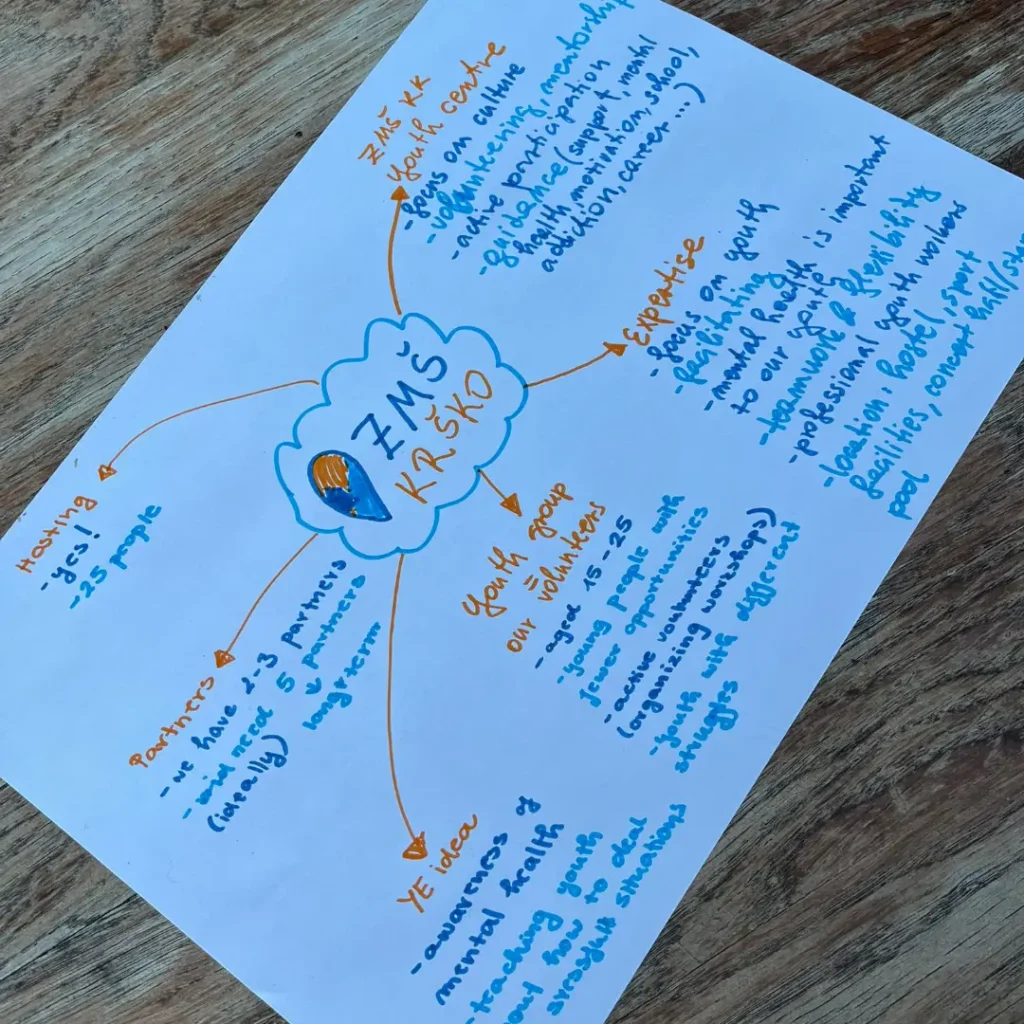 ZMŠ
KRŠKO
ZMŠ KK
youth centre
- focus on culture
- volunteering, mentorship
- active participation
- guidance (support, mental
health, motivation, school,
addiction, career ...)
Expertise
- focus on youth
- facilitating
- mental health is important
to our youth
- teamwork & flexibility
- professional youth workers
- location, hostel, sport
facilities, concert hall/
pool
Youth group
=
our volunteers
- aged 15-25
- young people with
fewer opportunities
- active volunteers
(organizing workshops)
- youth with different
struggles
YE idea
- awareness of
mental health
- teaching youth
how to deal
stressful situations
Partners
- we have 2-3 partners
- need 5 partners
(ideally)
long-term
Hosting
- yes!
- 25 people